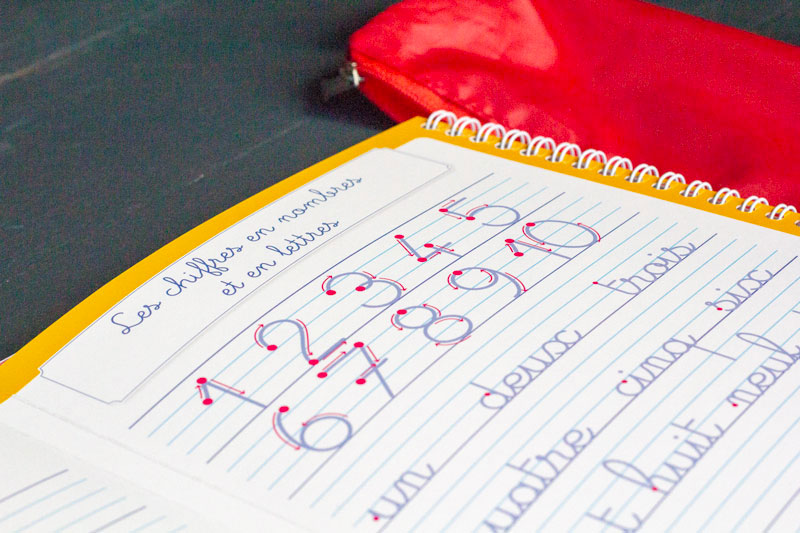 Les chiffres en nombres
et en lettres
1 2 3 4 5
6 7 8 9 10
un deux trois
uatre cinq six
t huit neuf